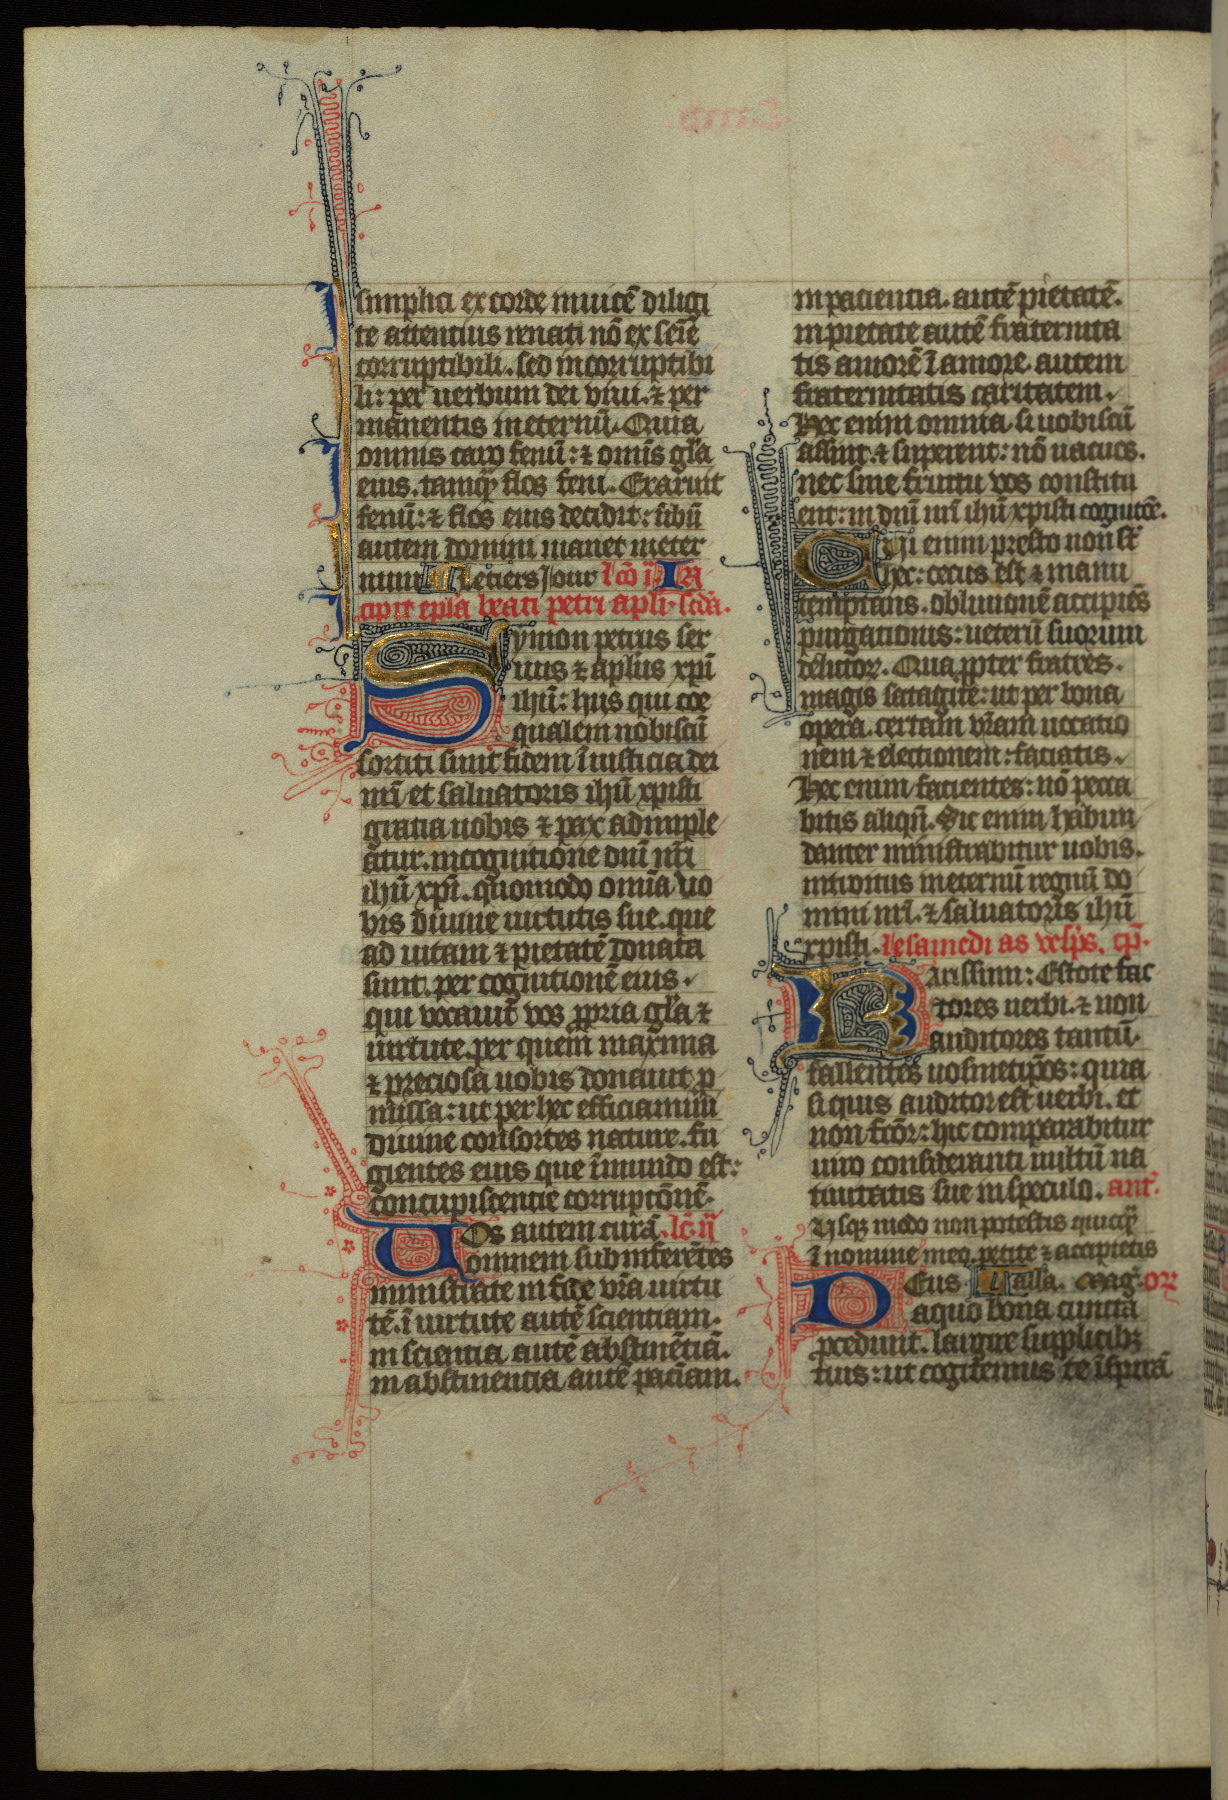 simplici ex corde inuicē diligi
te attentius renati nō ex seīe
corruptibili. sed incorruptibi
li: per uerbum dei viui. ⁊ per
manentis ineternū. Quia
omnis caro fenū: ⁊ omīs gl̄a
eius. tamqȝ flos feni. Exaruit
fenū: ⁊ flos eius decidit: ūbū
autem domini manet ineter
num letiers Jour lcō ii IN
cipit epl̄a beati petri apl̄i. scd̄a.
Symon petrus ser
uus ⁊ apl̄us xp̄i
ihū: hiis qui coe
qualem nobiscū
sortiti sunt fidem ī iusticia dei
nr̄i et saluatoris ihū xpisti
gratia uobis ⁊ pax adimple
atur. incognitione dnī nr̄i
ihū xp̄i. quomodo omīa uo
bis diuine uirtutis sue. que
ad uitam ⁊ pietatē donata
sunt. per cognitionē eius.
qui vocauit vos ꝓpria gl̄a ⁊
uirtute. per quem maxima
⁊ preciosa uobis donauit ꝓ
missa: ut per hec efficiamini
diuine consortes nature. fu
gientes eius que ī mundo est:
concupiscentie corruptōnē.
Uos autem curā. lc̄ ii
omnem subinferētes
ministrate in fide vr̄a uirtu
tē. ī uirtute autē scientiam.
in scientia autē abstinētiā.
in abstinentia autē pac̄iam.
in paciencia. autē pietatē.
in pietate autē fraternita
tis amorē ī amore. autem
fraternitatis caritatem.
Hec enim omnia. si uobiscū
assint. ⁊ superent: nō uacuos.
nec sine fructu vos constitu
ent: in dnī nr̄i ihū xpisti cognitōe.
Cui enim presto non sūt
hec: cecus est ⁊ manu
temptans. obliuionē accipiēs
purgationis: ueterū suorum
delictoꝝ. Qua ꝓpter fratres.
magis satagite: ut per bona
opera. certam vr̄am uocatio
nem ⁊ electionem: faciatis.
Hec enim facientes: nō pecca
bitis aliqn̄. Sic enim habun
danter ministrabitur uobis.
introitus ineternū regnū do
mini nr̄i. ⁊ saluatoris ihū
xpisti. le samedi as vesp̄s. cp̄.
Karissimi: Estote fac
tores uerbi. ⁊ non
auditores tantū.
fallentes uosmetip̄os: quia
si quis auditor est uerbi. et
non fc̄or: hic comparabitur
uiro consideranti uultū na
tiuitatis sue in speculo. ant̄.
Usqȝ modo non petestis quicqȝ
ī nomine meo. petite ⁊ accipietis
Eus all̄a. Maḡ. oꝝ
Deus a quo bona cuncta
ꝓcedunt. largire supplicibȝ
tuis: ut cogitemus te īspirā